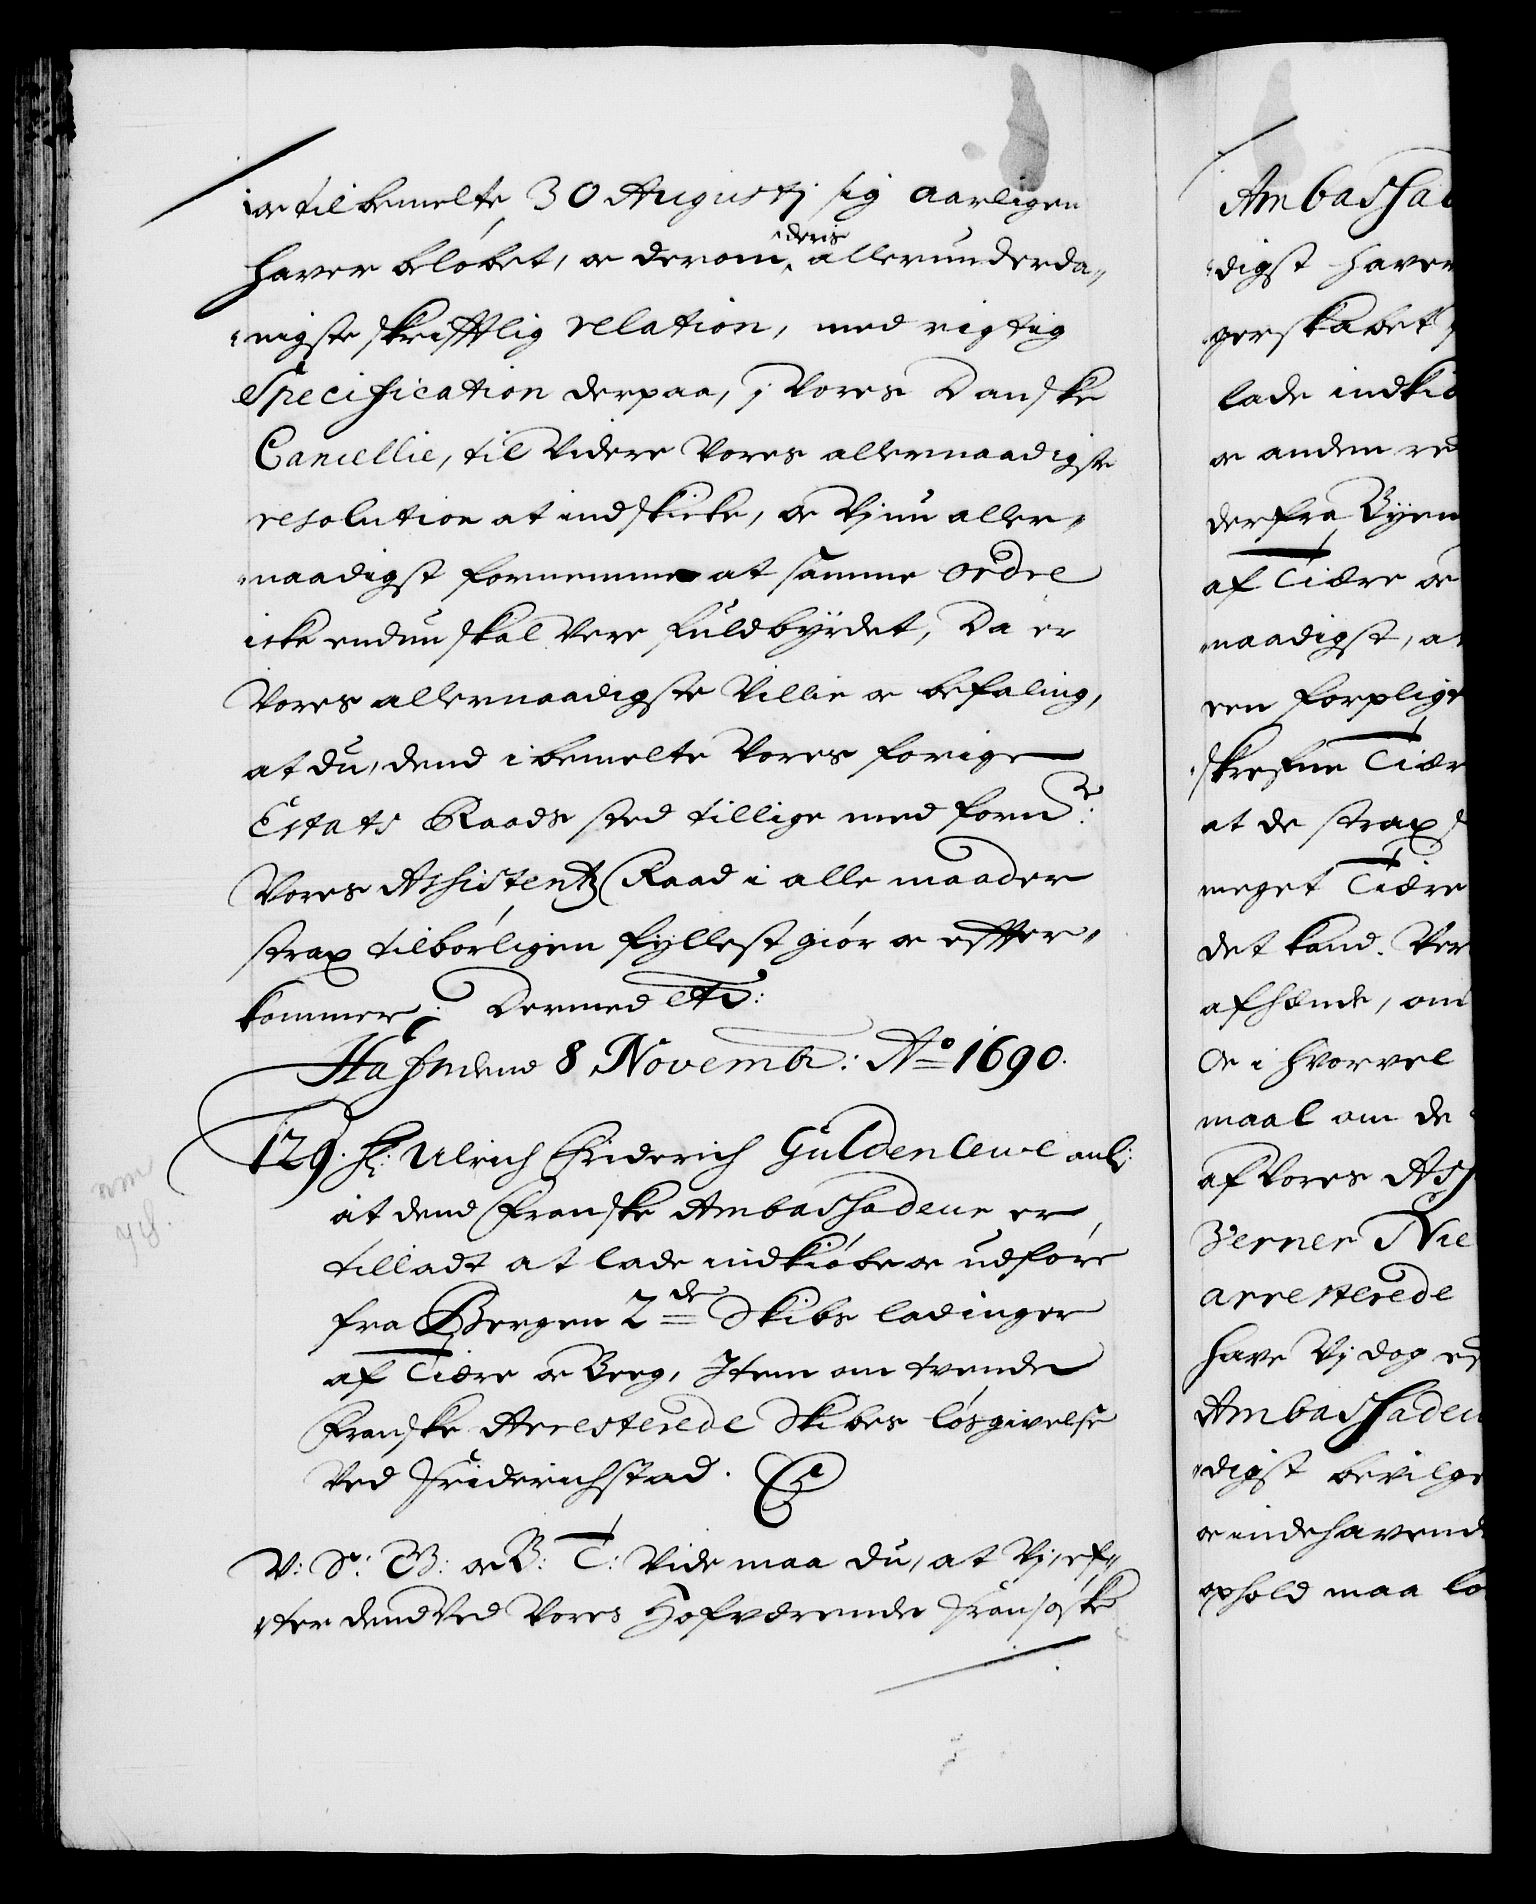 oc til bemelte 30 Augustj sig aarligen
hafver beløbet, oc derom deris allerunderda„
„nigste skrifftlig relation, med rigtig
Specification derpaa, j Vores Danske
Cancellie, til Videre Vores allernaadigste
resolution at indskicke, oc Vj nu aller„
„naadigst fornemme at samme ordre
icke endnu skal Vere fuldbyrdet, Da er
Vores allernaadigste Villie oc befaling,
at du, dend i bemelte Vores forige
Estats Raads sted tillige med fornde:
Vores Assistentz Raad i alle maader
strax tilbørligen fyllest giør oc effter„
kommer; Dermed etc:
Hafn dend 8 Novembr: Ao 1690.
129. Hr: Ulrich Friderich Güldenlewe anl:
at dend Franske Ambassadeur er
tilladt at lade indkiøbe oc udføre
fra Bergen 2de Skibs ladinger
af Tiære oc Beeg, Item om tvende
Franske Arresterede Skibes løsgivelse
Ved Friderichstad.
V: S: G: oc B: T: Vide maa du, at Vj, ef„
„ter dend Ved Vores Hof værende Fransøske
Ambassad
„digst hafver
gerskabet
lade indkiø
oc anden re
derfra Byen
af Tiære oc
naadigst, a
een forplige
„skrefne Tiær
at de strax
meget Tiære
det kand. Ver
afhænde, om
Oc i hvorvel
maal om de
af Vores Ass
Verner Nie
arresterede
have Vj dog
Ambassadeu
„digst bevilge
oc indehavend
ophold maa lø